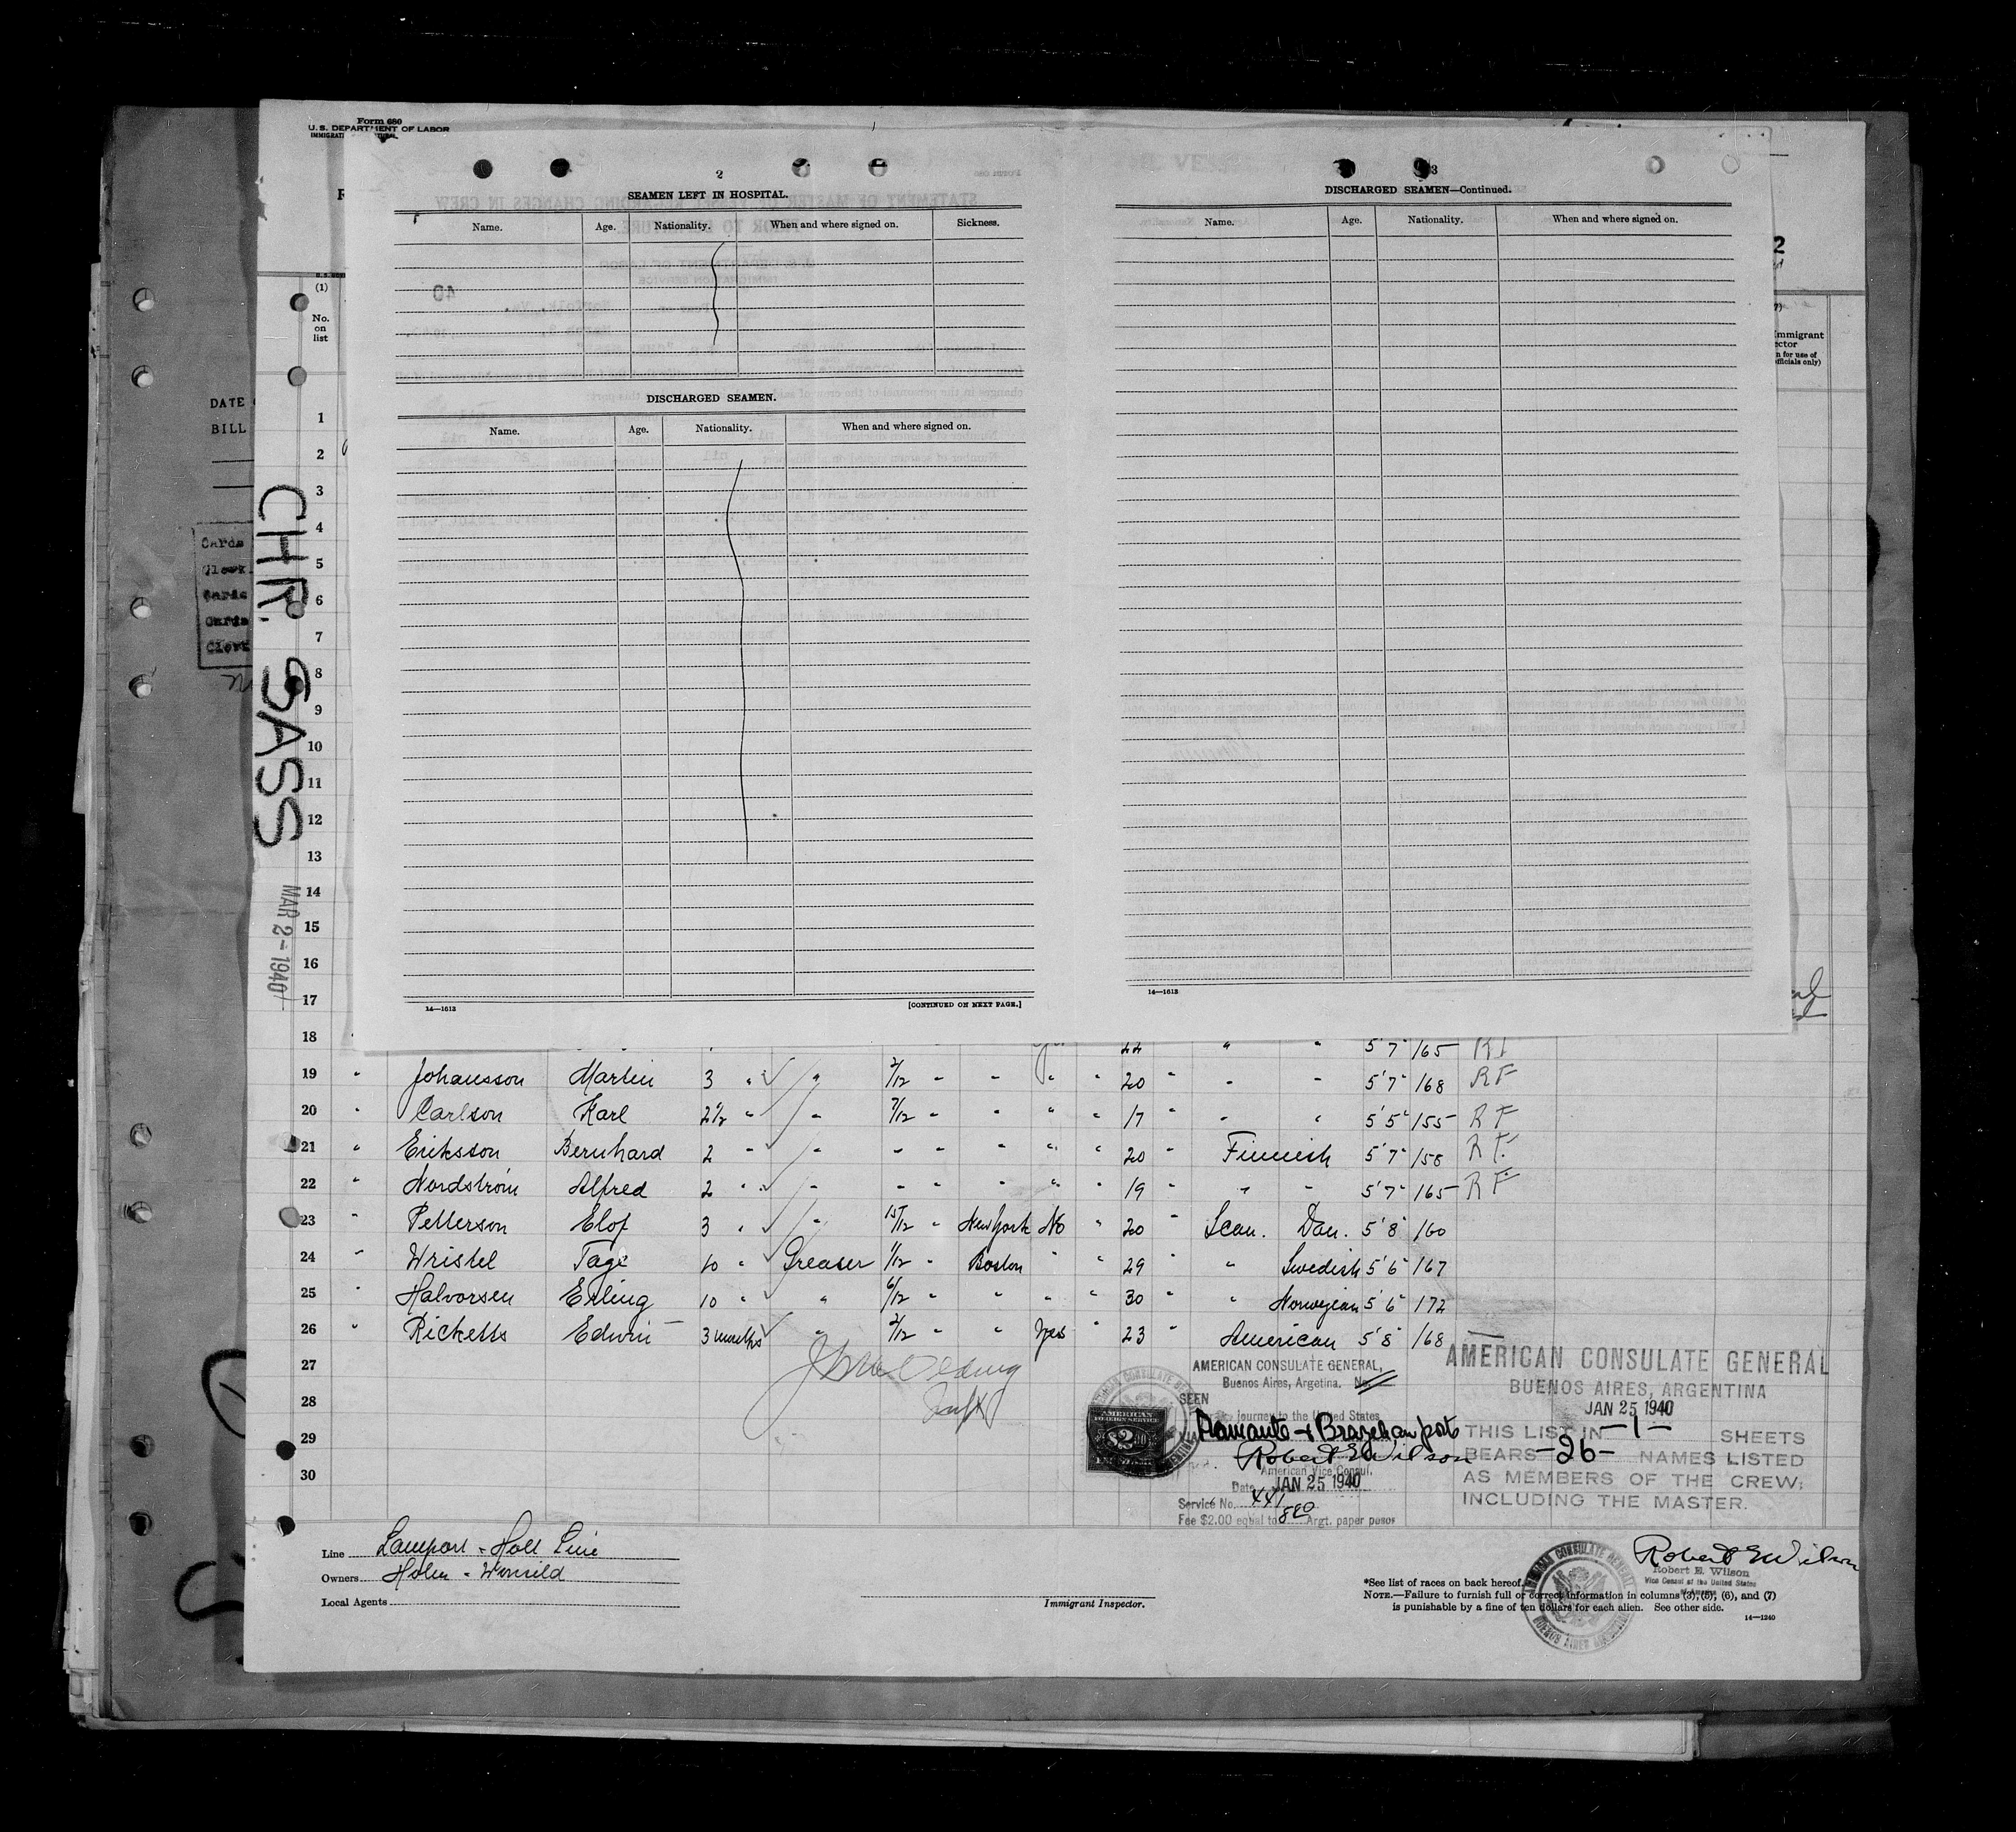 Form 680
U.S. DEPARTMENT OF LABOR
2
SEAMEN LEFT IN HOSPITAL.
Name. Age. Nationality. When and where signed on. Sickness.
DISCHARGED SEAMEN.
Name. Age. Nationality. When and where signed on.
14—1613 [CONTINUED ON NEXT PAGE.]
3
DISCHARGED SEAMEN—Continued.
Name. Age. Nationality. When and where signed on.
14—1613
DATE
BILL
Cards
Clerk
Cards
Cards
Clerk
CHR. SASS
MAR 2 - 1940
(1)
No. on list
1
2
3
4
5
6
7
8
9
10
11
12
13
14
15
16
17
18 22 " " 5'7" 165 RF
19 " Johansson Martin 3 " " 2/12 " " " " 20 " " " 5'7" 168 RF
20 " Carlson Karl 2 1/2 " " 7/12 " " " " 17 " " " 5'5" 155 RF
21 " Eriksson Bernhard 2 " " " " " " " 20 " Finnish 5'7" 158 RF
22 " Nordström Alfred 2 " " " " " " " 19 " " " 5'7" 165 RF
23 " Petterson Elof 3 " " 15/12 " New York No " 20 " Scan. Dan. 5'8" 160
24 " Wristel Tage 10 " Greaser 1/12 " Boston " " 29 " " Swedish 5'6" 167
25 " Halvorsen Erling 10 " " 6/12 " " " " 30 " " Norwegian 5'6" 172
26 " Ricketts Edwin 3 months " 2/12 " " Yes " 23 " American 5'8" 168 —
27
28
29
30
AMERICAN CONSULATE GENERAL,
Buenos Aires, Argetina. No.
SEEN
journey to the United States
Diamante + Brazilian ports
Robert E Wilson
American Vice Consul.
Date JAN 25 1940
Service No. 441
Fee $2.00 equal to 8.80 Argt. paper pesos
AMERICAN FOREIGN SERVICE
AMERICAN CONSULATE GENERAL
BUENOS AIRES, ARGENTINA
JAN 25 1940
THIS LIST IN -1- SHEETS
BEARS -26- NAMES LISTED
AS MEMBERS OF THE CREW;
INCLUDING THE MASTER.
Line Lamport - Holt Line
Owners Holm - Wonsild
Local Agents
Immigrant Inspector.
Robert E Wilson
Robert E. Wilson
Vice Consul of the United States
of America
AMERICAN CONSULATE GENERAL
BUENOS AIRES ARGENTINA
*See list of races on back hereof.
NOTE.—Failure to furnish full or correct information in columns (3), (5), (6), and (7)
is punishable by a fine of ten dollars for each alien. See other side.
14—1240